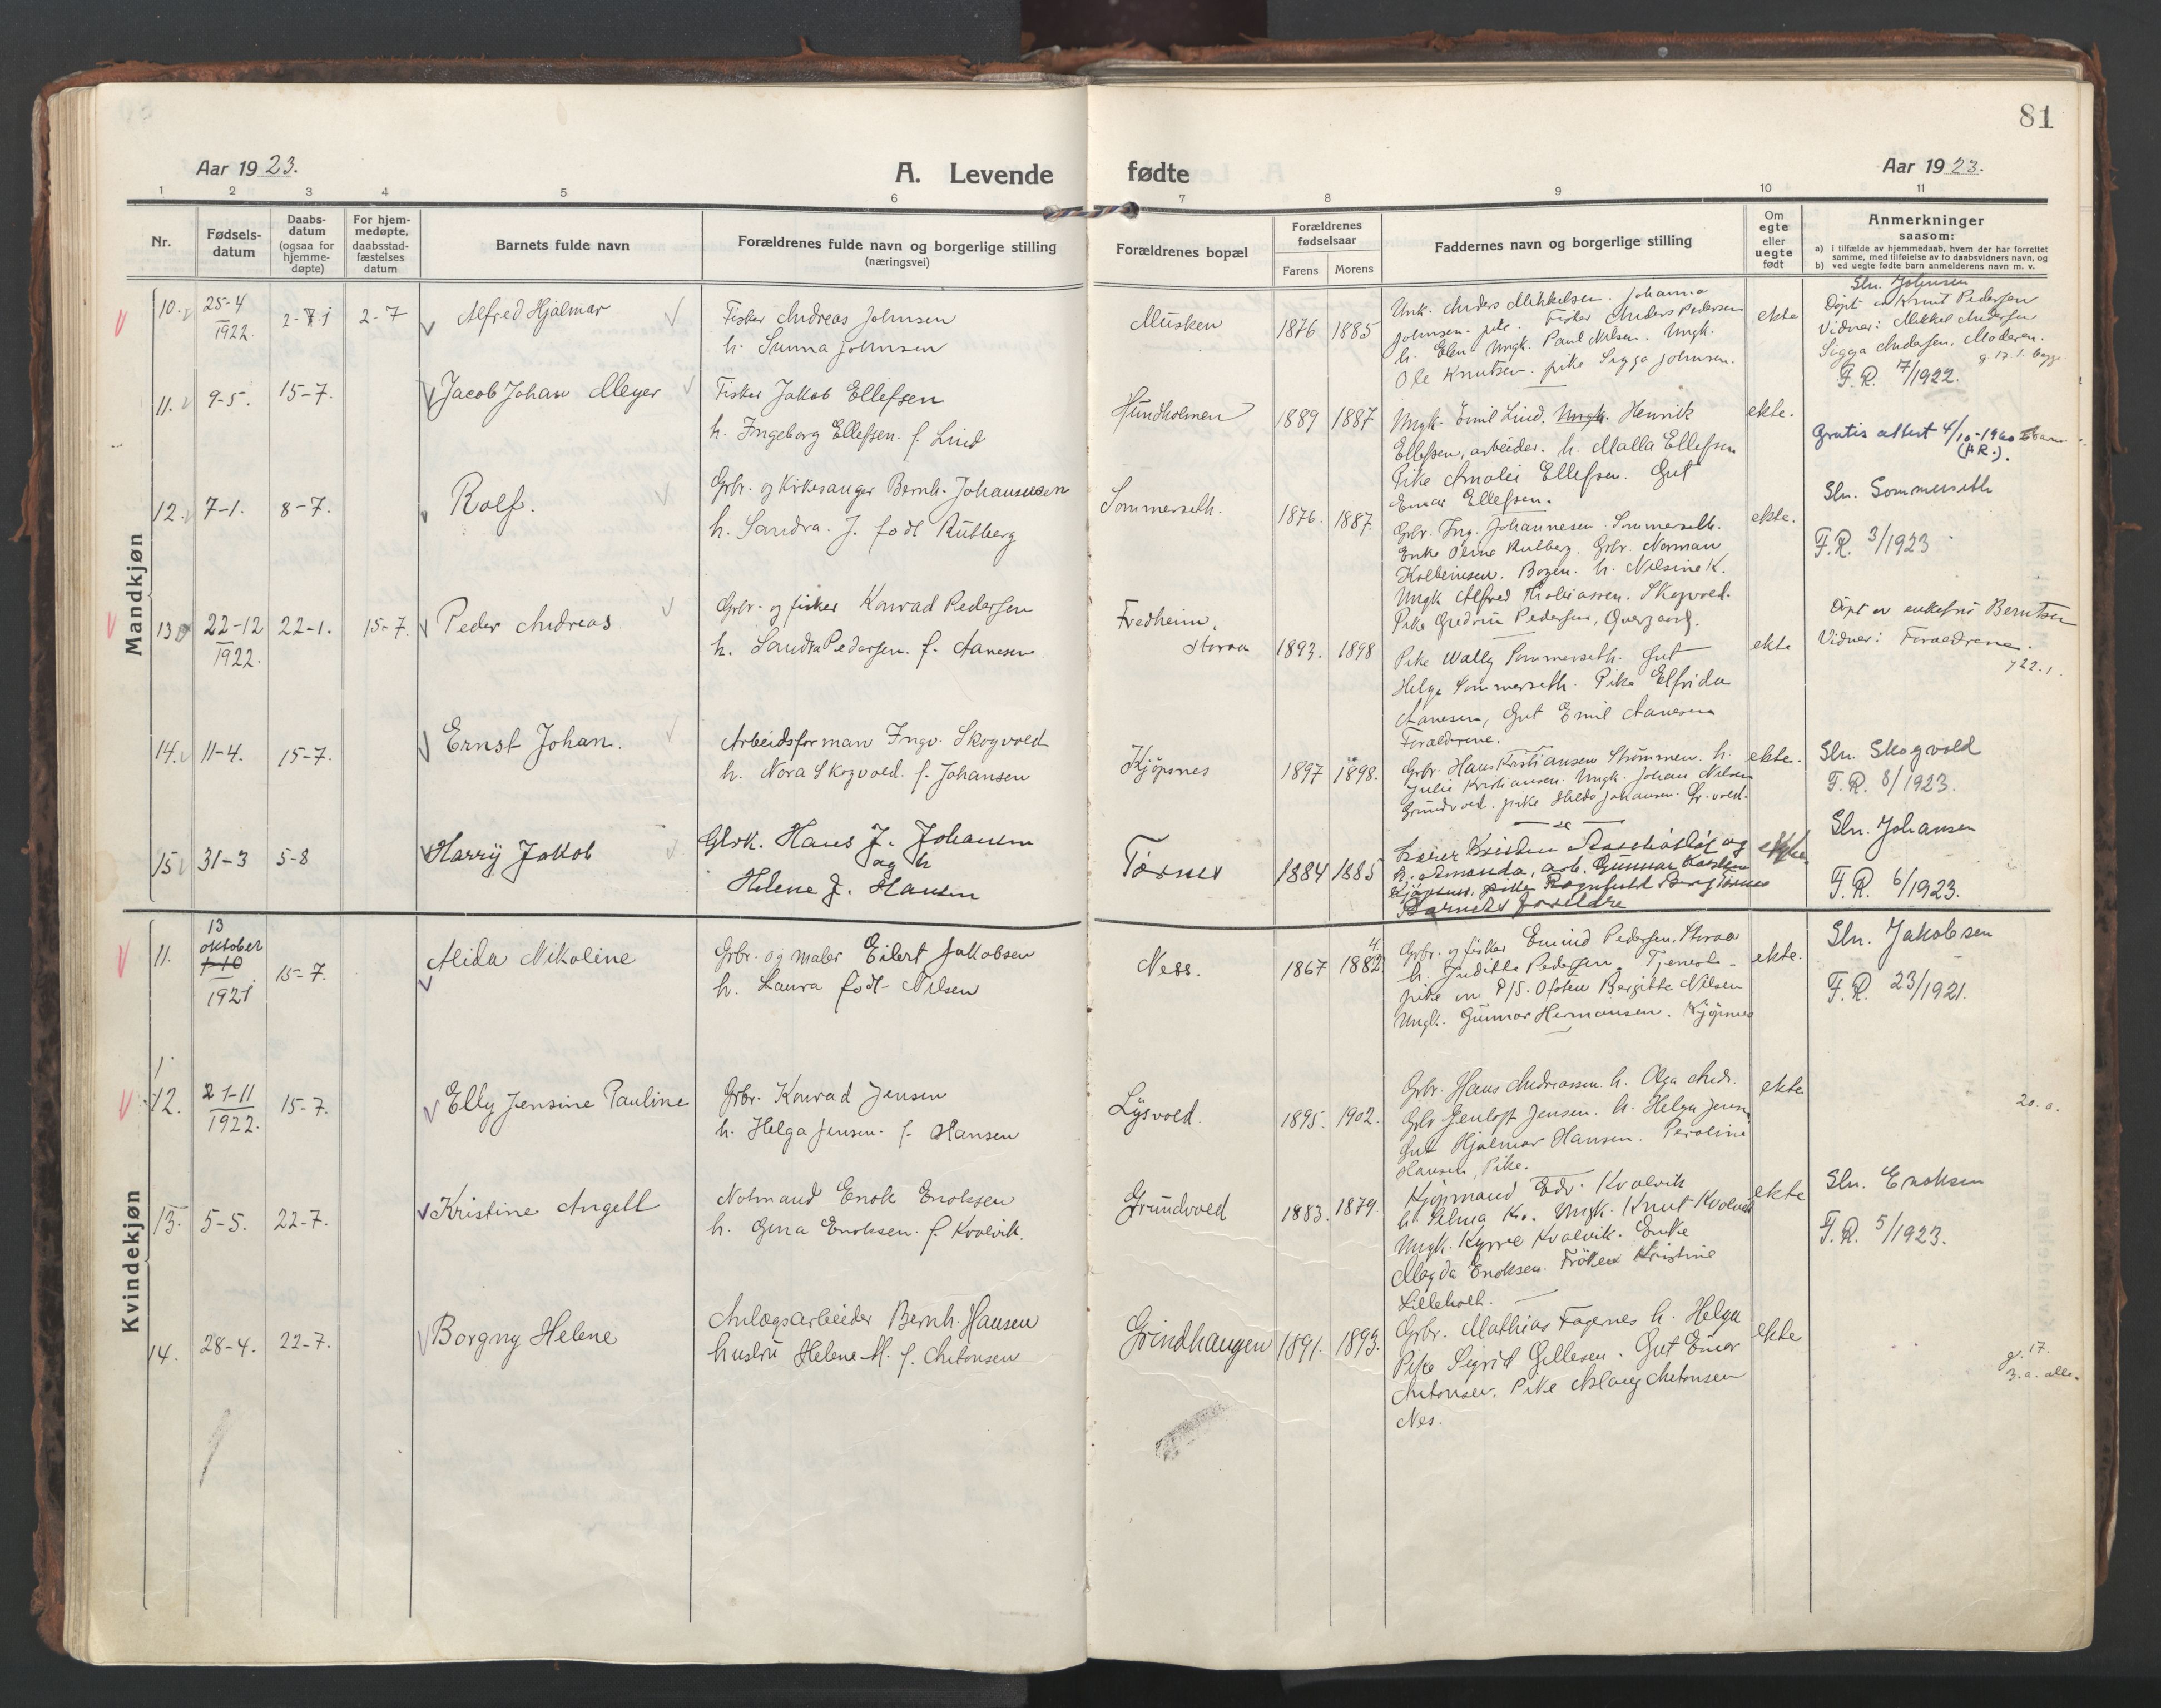 81
Aar 1923.
A. Levende fødte
Aar 1923.
1 2 3 4 5 6 7 8 9 10 11
Nr.
Fødsels-
datum
Daabs-
datum
(ogsaa for
hjemme-
døpte)
For hjem-
medøpte,
daabsstad-
fæstelses
datum
Barnets fulde navn
Forældrenes fulde navn og borgerlige stilling
(næringsvei)
Forældrenes bopæl
Forældrenes
fødselsaar
Farens Morens
Faddernes navn og borgerlige stilling
Om
egte
eller
uegte
født
Anmerkninger
saasom:
a) i tilfælde av hjemmedaab, hvem der har forrettet
samme, med tilføielse av to daabsvidners navn, og
b) ved uegte fødte barn anmelderens navn m. v.
Mandkjøn
10. 25-4
1922. 2-7 Alfred Hjalmar
Fisker Andreas Johnsen
h. Sunna Johnsen
Musken 1876 1885
Unk. Anders Mikkelsen. Johanna
Johnsen. pike. Fisker Anders Pedersen
h. Elen Ungk. Paul Nilsen. Ungk.
Ole Knutsen. pike Sigga Johnsen.
ekte
Sln. Johnsen
Døpt av Knut Pedersen
Vidner: Mikkel Andersen
Sigga Andersen. Moderen.
F. R. 17/1922.
11. 9-5. 15-7. Jacob Johan Meyer
Fisker Jakob Ellefsen
h. Ingeborg Ellefsen. f. Lind
Hundholmen 1889 1887
Ungk. Emil Lind. Ungk. Henrik
Ellefsen, arbeider. h. Malla Ellefsen
Pike Amalie Ellefsen. Gut
Einar Ellefsen.
ekte.
Gratis attest 4/10-1960
(HR.).
12. 7-1. 8-7. Rolf.
Grbr. og Kirkesanger Bernh. Johannesen
h. Sandra. J. født Rutberg
Sommerseth. 1876. 1887.
Grbr. Ing. Johannesen. Sommerseth.
Enke Oline Rutberg. Grbr. Norman
Kolbeinsen. Bogen. h. Nilsine K.
Ungk Alfred Tobiassen. Skogvold.
Pike Gredrin Pedersen,
ekte.
Sln. Sommerseth
F.R. 3/1923
13 22-12
1922. 22-1. 15-7. Peder Andreas
Grbr. og fisker Konrad Pedersen
h. Sandra Pedersen. f. Aanesen
Fredheim,
Storaa 1893. 1898
Pike Wally Sommerseth. Gut
Helge Sommerseth. Pike Elfrida
Aanesen, Gut Emil Aanesen
Forældrene.
ekte
Døpt av enkefru Berntsen
Vidner: Forældrene.
14. 11-4. 15-7. Ernst Johan.
Arbeidsforman Ingv. Skogvold
h. Nora Skogvold. f. Johansen
Kjøpsnes 1897 1898.
Grbr. Hans Kristiansen Strømmen. h.
Julie Kristiansen. Ungk. Johan Nilsen
Grundvold. pike Hilda Johansen. Gr.vold.
ekte.
Sln. Skogvold
F. R. 8/1923.
15 31-3 5-8 Harry Jakob
Gbrk. Hans J. Johansen
og h
Helene J. Hansen
Tørnes 1884 1885
h. Amanda, arb. Gunnar Karlsen
Barnets foreldre
ekte
Sln. Johansen
F. R. 6/1923.
Kvindekjøn
11. 13
oktober
1921 15-7. Alida Nikoline
Grbr. og maler Eilert Jakobsen
h. Laura født Nilsen
Ness. 1867 1882
Grbr. og fisker Emind Pedersen. Storaa
h. Juditte Pedersen. Tjeneste-
pike om P/S. Ofoten Bergitte Nilsen
Ungk. Gunnar Hermansen. Kjøpsnes
ekte.
Sln. Jakobsen
F. R. 23/1921.
12. 21-11
1922. 15-7. Elly Jensine Pauline
Grbr. Konrad Jensen
h. Helga Jensen. f. Hansen
Lysvold. 1895. 1902.
Grbr. Hans Andreassen. h. Olga Andr.
Grbr Genlost Jensen. h. Helga Jensen
Gut Hjalmar Hansen. Peroline
Hansen, Pike.
ekte
13. 5-5. 22-7. Kristine Angell
Notmand Enok Enoksen
h. Gina Enoksen. f. Kvalvik.
Grundvold 1883. 1879.
Kjøpmand Edv. Kvalvik
h. Selma Kv. Ungk. Knut Kvalvik
Ungk. Kyrre Kvalvik. Enke
Magda Enoksen. Frøken Kristine
Lilleholt.
ekte
Sln. Enoksen
F. R. 5/1923.
14. 28-4. 22-7. Borgny Helene
Anlægsarbeider Bernh. Hansen
hustru Helene M. f. Antonsen
Grindhaugen 1891. 1893.
Grbr. Mathias Fagernes h. Helga
Pike Sigrid Gillesen. Gut Einar
Antonsen. Pike Aslaug Antonsen
Nes.
ekte